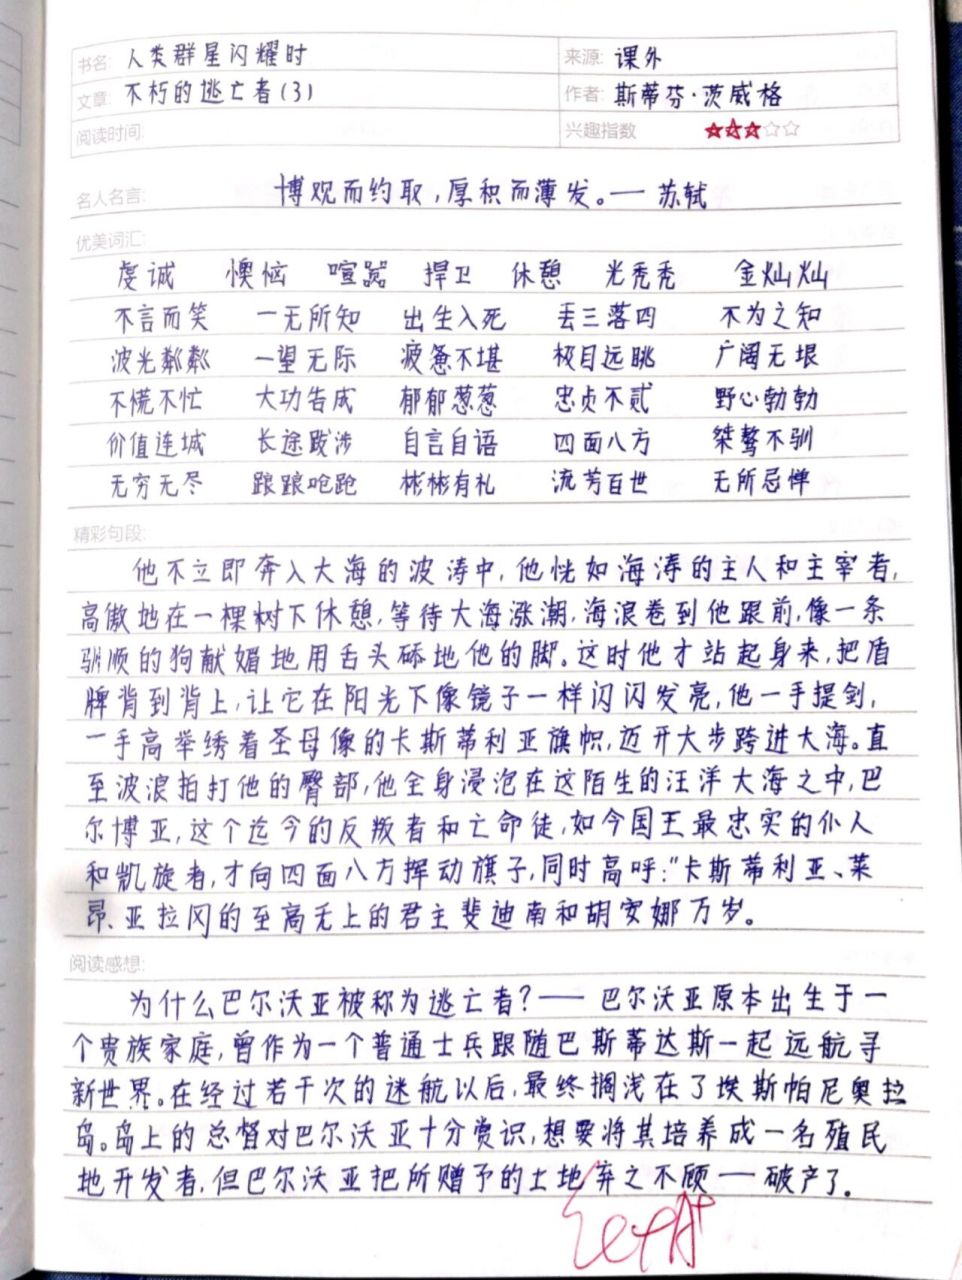 书名: 人类群星闪耀时 来源: 课外
文章: 不朽的逃亡者(3) 作者: 斯蒂芬·茨威格
阅读时间: 兴趣指数 ★★★☆☆
名人名言: 博观而约取,厚积而薄发。——苏轼
优美词汇:
虔诚 懊恼 喧嚣 捍卫 休憩 光秃秃 金灿灿
不言而笑 一无所知 出生入死 丢三落四 不为之知
波光粼粼 一望无际 疲惫不堪 极目远眺 广阔无垠
不慌不忙 大功告成 郁郁葱葱 忠贞不贰 野心勃勃
价值连城 长途跋涉 自言自语 四面八方 桀骜不驯
无穷无尽 踉踉跄跄 彬彬有礼 流芳百世 无所忌惮
精彩句段:
他不立即奔入大海的波涛中,他恍如海涛的主人和主宰者,
高傲地在一棵树下休憩,等待大海涨潮,海浪卷到他跟前,像一条
驯顺的狗献媚地用舌头舔地他的脚。这时他才站起身来,把盾
牌背到背上,让它在阳光下像镜子一样闪闪发亮,他一手提剑,
一手高举绣着圣母像的卡斯蒂利亚旗帜,迈开大步跨进大海。直
至波浪拍打他的臀部,他全身浸泡在这陌生的汪洋大海之中,巴
尔博亚,这个迄今的反叛者和亡命徒,如今国王最忠实的仆人
和凯旋者,才向四面八方挥动旗子,同时高呼:“卡斯蒂利亚、莱
昂、亚拉冈的至高无上的君主斐迪南和胡安娜万岁。
阅读感想:
为什么巴尔沃亚被称为逃亡者?——巴尔沃亚原本出生于一
个贵族家庭,曾作为一个普通士兵跟随巴斯蒂达斯一起远航寻
新世界。在经过若干次的迷航以后,最终搁浅在了埃斯帕尼奥拉
岛。岛上的总督对巴尔沃亚十分赏识,想要将其培养成一名殖民
地开发者,但巴尔沃亚把所赠予的土地弃之不顾——破产了。
A+